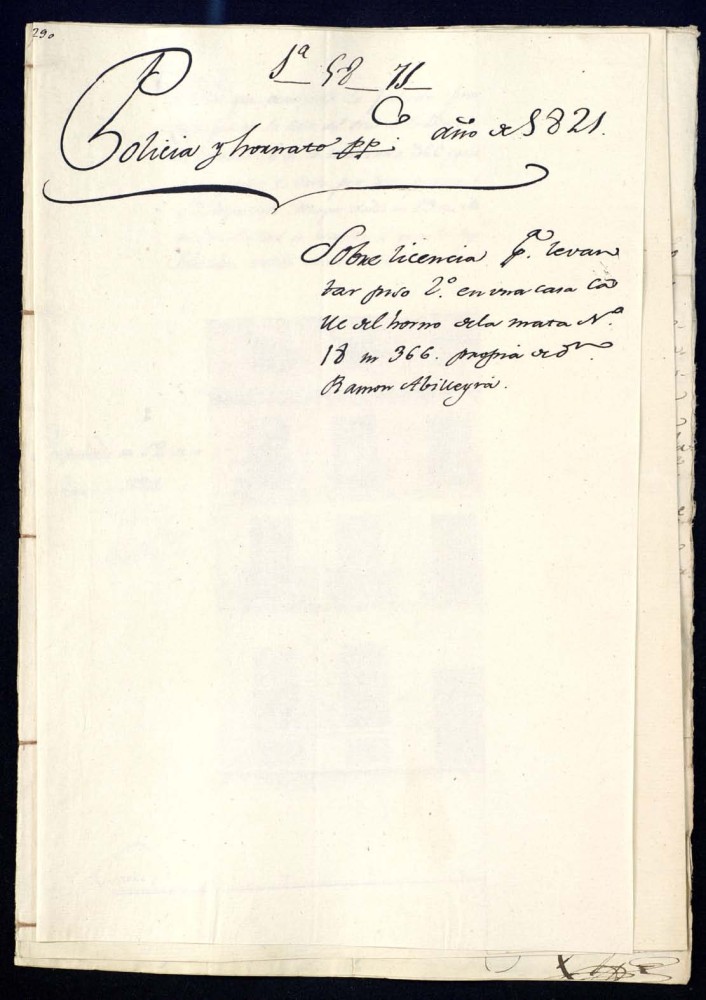 290
1ª 58 71
Policia y hornato pp.co año de 1821.
Sobre licencia p.ª levan
tar piso 2.º en una casa Ca
lle del horno dela mata N.º
18 m 366. propia de d.n
Ramon Abilleyra.